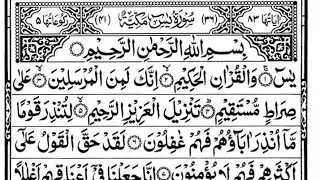 اٰيَاتُهَا ٨٣ (٣٦) سُوْرَةُ يٰسٓ مَكِّيَّةٌ (٤١) رُكُوْعَاتُهَا ٥
بِسْمِ اللهِ الرَّحْمٰنِ الرَّحِيْمِ
يٰسٓ ۝١ وَالْقُرْاٰنِ الْحَكِيْمِ ۝٢ اِنَّكَ لَمِنَ الْمُرْسَلِيْنَ ۝٣ عَلٰى
صِرَاطٍ مُّسْتَقِيْمٍ ۝٤ تَنْزِيْلَ الْعَزِيْزِ الرَّحِيْمِ ۝٥ لِتُنْذِرَ قَوْمًا
مَّاۤ اُنْذِرَ اٰبَآؤُهُمْ فَهُمْ غٰفِلُوْنَ ۝٦ لَقَدْ حَقَّ الْقَوْلُ عَلٰۤى
اَكْثَرِهِمْ فَهُمْ لَا يُؤْمِنُوْنَ ۝٧ اِنَّا جَعَلْنَا فِيْۤ اَعْنَاقِهِمْ اَغْلٰلًا